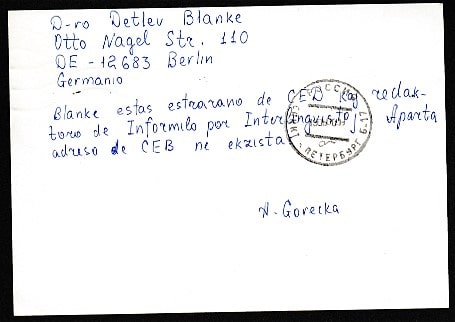 D-ro Detlev Blanke
Otto Nagel Str. 110
DE-12683 Berlin
Germanio
Blanke estas estrarano de CED kaj redak-
toro de Informilo por Interlingvistoj. Aparta
adreso de CEB ne ekzistas
A. Gorecka
РОССИЯ
САНКТ-ПЕТЕРБУРГ Б-17